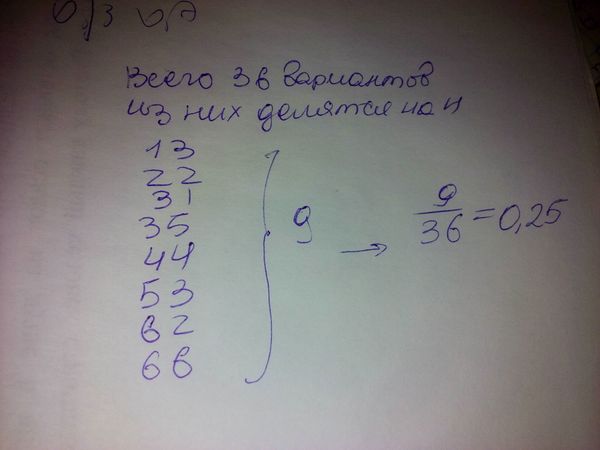 0,3 0,7
Всего 36 вариантов
из них делятся на 4
13
22
31
35
44
53
62
66
9 → 9/36 = 0,25